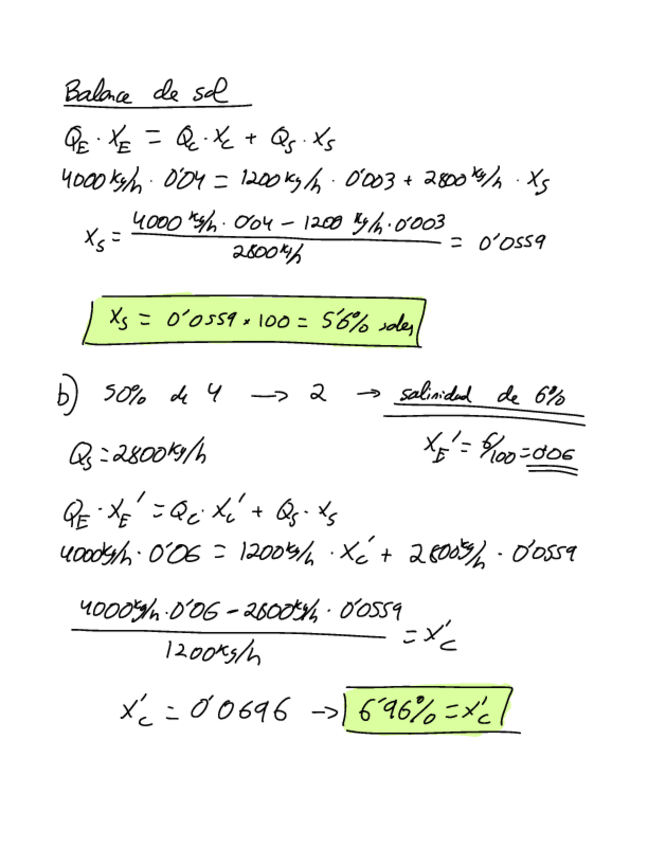 Balance de sal
Q_E · X_E = Q_C · X_C + Q_S · X_S
4000 kg/h · 0'04 = 1200 kg/h · 0'003 + 2800 kg/h · X_S
X_S = (4000 kg/h · 0'04 - 1200 kg/h · 0'003) / 2800 kg/h = 0'0559
X_S = 0'0559 * 100 = 5'6% sales
b) 50% de 4 → 2 → salinidad de 6%
Q_S = 2800 kg/h X_E' = 6/100 = 0'06
Q_E · X_E' = Q_C · X_C' + Q_S · X_S
4000 kg/h · 0'06 = 1200 kg/h · X_C' + 2800 kg/h · 0'0559
(4000 kg/h · 0'06 - 2800 kg/h · 0'0559) / 1200 kg/h = X'_C
X'_C = 0'0696 → 6'96% = X'_C